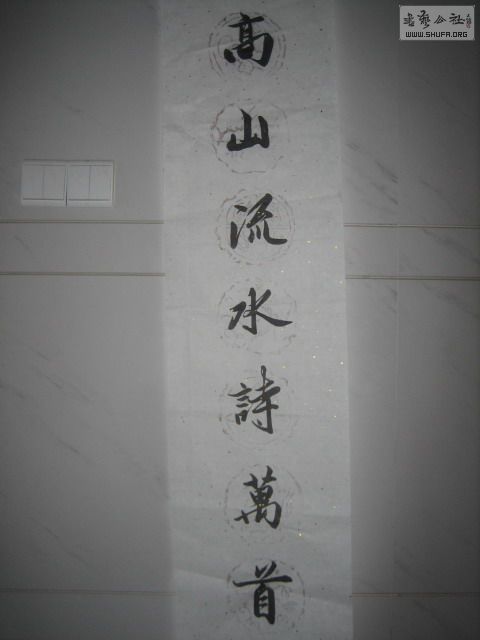 高山流水詩萬首
書藝公社
WWW.SHUFA.ORG